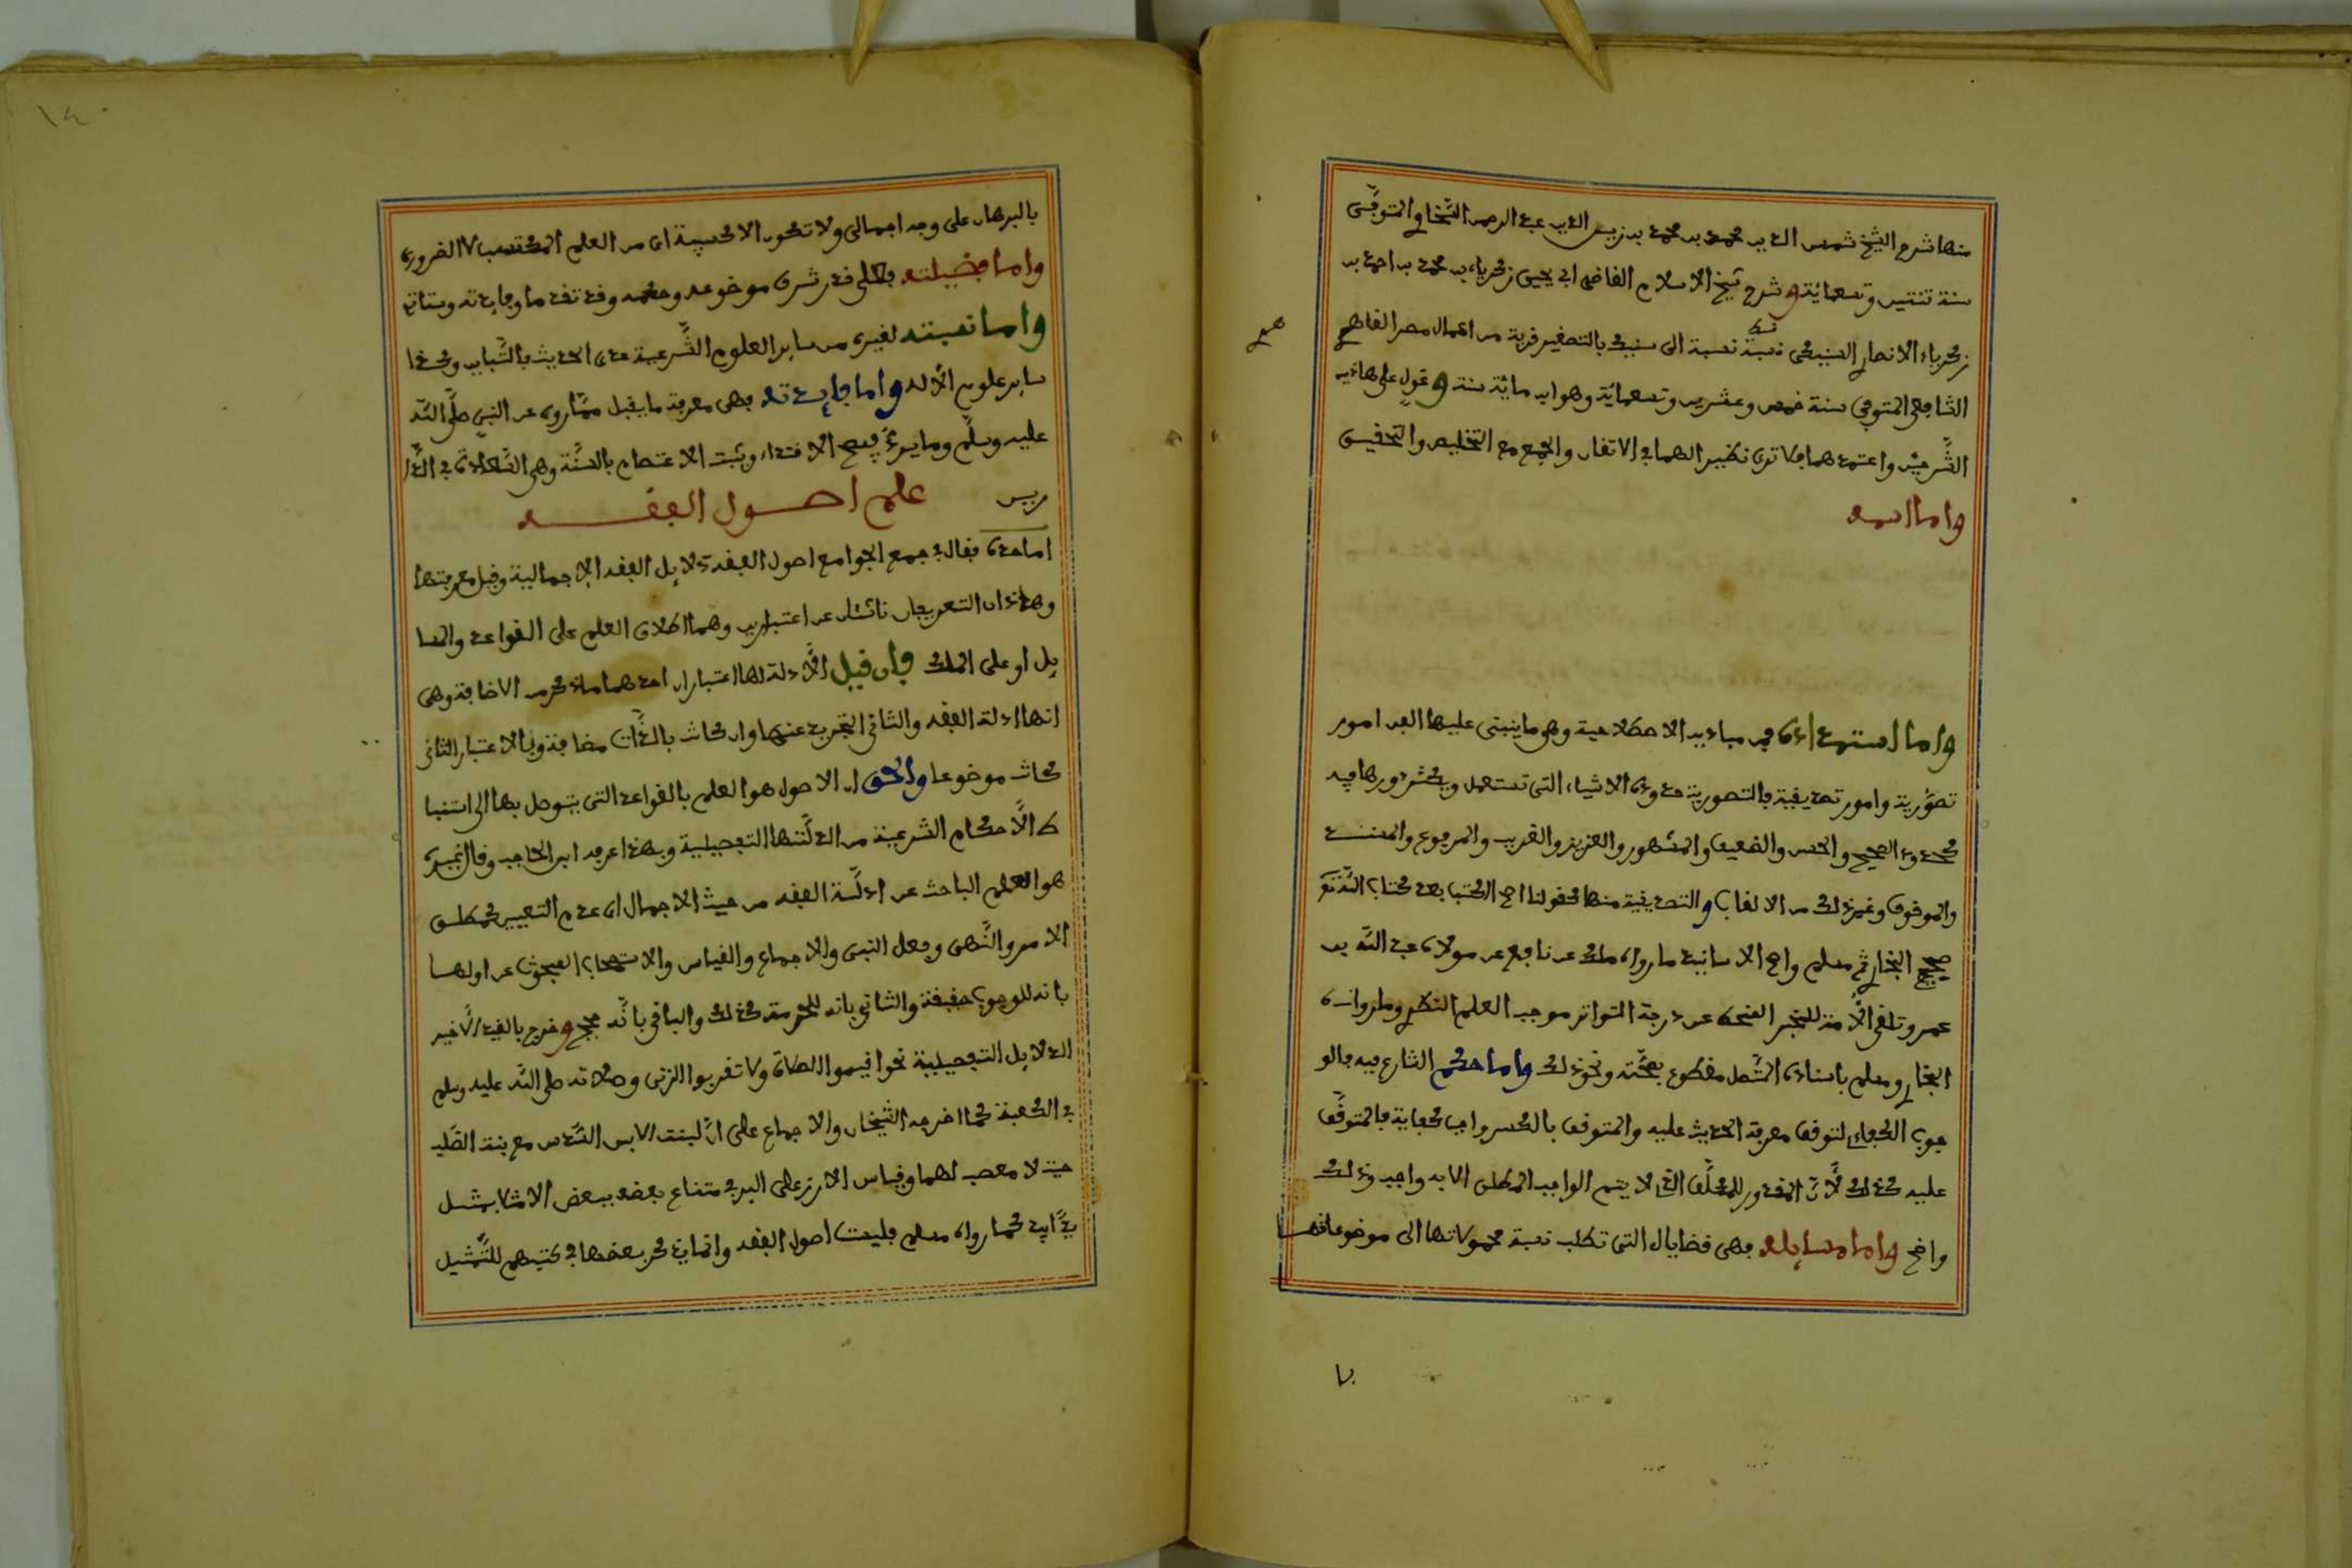 منها شرح الشيخ شمس الدين محمد بن محمد بن زين الدين عبد الرحمن السخاوي المتوفى
سنة ثنتين وتسعمائة وشرح شيخ الاسلام القاضي ابي يحيى زكرياء بن محمد بن احمد بن
زكرياء الانصاري السنيكي نسبة الى سنيك بالتصغير قرية من اعمال مصر القاهرة
الشافعي المتوفى سنة خمس وعشرين وتسعمائة وهو ابن مائة سنة وعول على هاذين
الشرحين واعتمدهما فلا ترى نظيرا لهما في الاتقان والجمع مع التخليص والتحقيق
واما اسمه
واما استمداده فمن مباديه الاصطلاحية وهو ما ينبني عليها الفن امور
تصورية وامور تصديقية فالتصورية حدود الاشياء التي تستعمل ويكثر دورها فيه
كحدود الصحيح والحسن والضعيف والمشهور والعزيز والغريب والمرفوع والمسند
والموقوف وغير ذلك من الالقاب والتصديقية منها كقولنا اصح الكتب بعد كتاب الله تع
صحيح البخاري ثم مسلم واصح الاسانيد ما رواه ملك عن نافع عن مولاه عبد الله بن
عمر وتلقي الامة للخبر المنحط عن درجة التواتر موجب العلم النظري وما رواه
البخاري ومسلم باسناده المتصل مقطوع بصحته ونحو ذلك واما حكم الشارع فيه فالو
جوب الكفائي لتوقف معرفة الحديث عليه والمتوقف بالكسر واجب كفاية فالمتوقف
عليه كذلك لان المقدور للمكلف الذي لا يتم الواجب المطلق الا به واجب وذلك
واضح واما مسايله فهي قضايا التي تطلب نسبة محمولاتها الى موضوعاتها
١٤
بالبرهان على وجه اجمالي ولا تكون الا كسبية اي من العلم المكتسب لا الضروري
واما فضيلته فعلى قدر شرف موضوعه وحكمه وقد تقدما وفايدته وستاتي
واما نسبته لغيره من ساير العلوم الشرعية عدى الحديث بالتباين وكذا
ساير علوم الآلة واما فايدته فهي معرفة ما يقبل مما روي عن النبي صلى الله
عليه وسلم وما يرد فيصح الاقتداء ويثبت الاعتصام بالسنة وهي السعادة في الدا
رين
علم اصول الفقه
اما حده فقال في جمع الجوامع اصول الفقه دلايل الفقه الاجمالية وقيل معرفتها
وهاذان التعريفان ناشئان عن اعتبارين وهما اطلاق العلم على القواعد والمسا
يل او على الملك فان قيل الادلة لها اعتباران احدهما ما ذكر من الاضافة وهي
انها ادلة الفقه والثاني التجريد عنها وان كانت بالذات مضافة وبالاعتبار الثاني
كانت موضوعا والحق ان الاصول هو العلم بالقواعد التي يتوصل بها الى استنبا
ط الاحكام الشرعية من ادلتها التفصيلية وبهذا عرفه ابن الحاجب وقال غيره
هو العلم الباحث عن ادلة الفقه من حيث الاجمال اي عدم التعيين كمطلق
الامر والنهي وفعل النبي والاجماع والقياس والاستصحاب المبحوث عن اولها
بانه للوجوب حقيقة والثاني بانه للحرمة كذلك والباقي بانه حجج وخرج بالقيد الاخير
الدلايل التفصيلية نحو اقيموا الصلاة ولا تقربوا الزنى وصلاته صلى الله عليه وسلم
في الكعبة كما اخرجه الشيخان والاجماع على ان لبنت الابن السدس مع بنت الصلب
حيث لا معصب لهما وقياس الارز على البر في امتناع بيع بعضه ببعض الا مثلا بمثل
يدا بيد كما رواه مسلم فليست اصول الفقه وانما يذكر بعضها في كتبهم للتمثيل